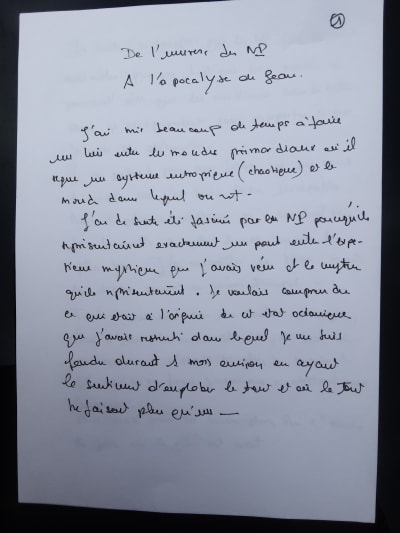 ①
De l'univers des NP
A l'apocalyse de Jean.
J'ai mis beaucoup de temps à faire
un lien entre les mondes primordiaux où il
règne un système entropique (chaotique) et le
monde dans lequel on vit -
J'ai de suite été fasciné par les NP parcequ'ils
représentaient exactement un pont entre l'expé-
rience mystique que j'avais vécu et le mystère
qu'ils représentaient. Je voulais comprendre
ce qui était à l'origine de cet état océanique
que j'avais ressenti dans lequel je me suis
fondu durant 1 mois environ en ayant
le sentiment d'englober le tout et où le Tout
ne faisait plus qu'un —